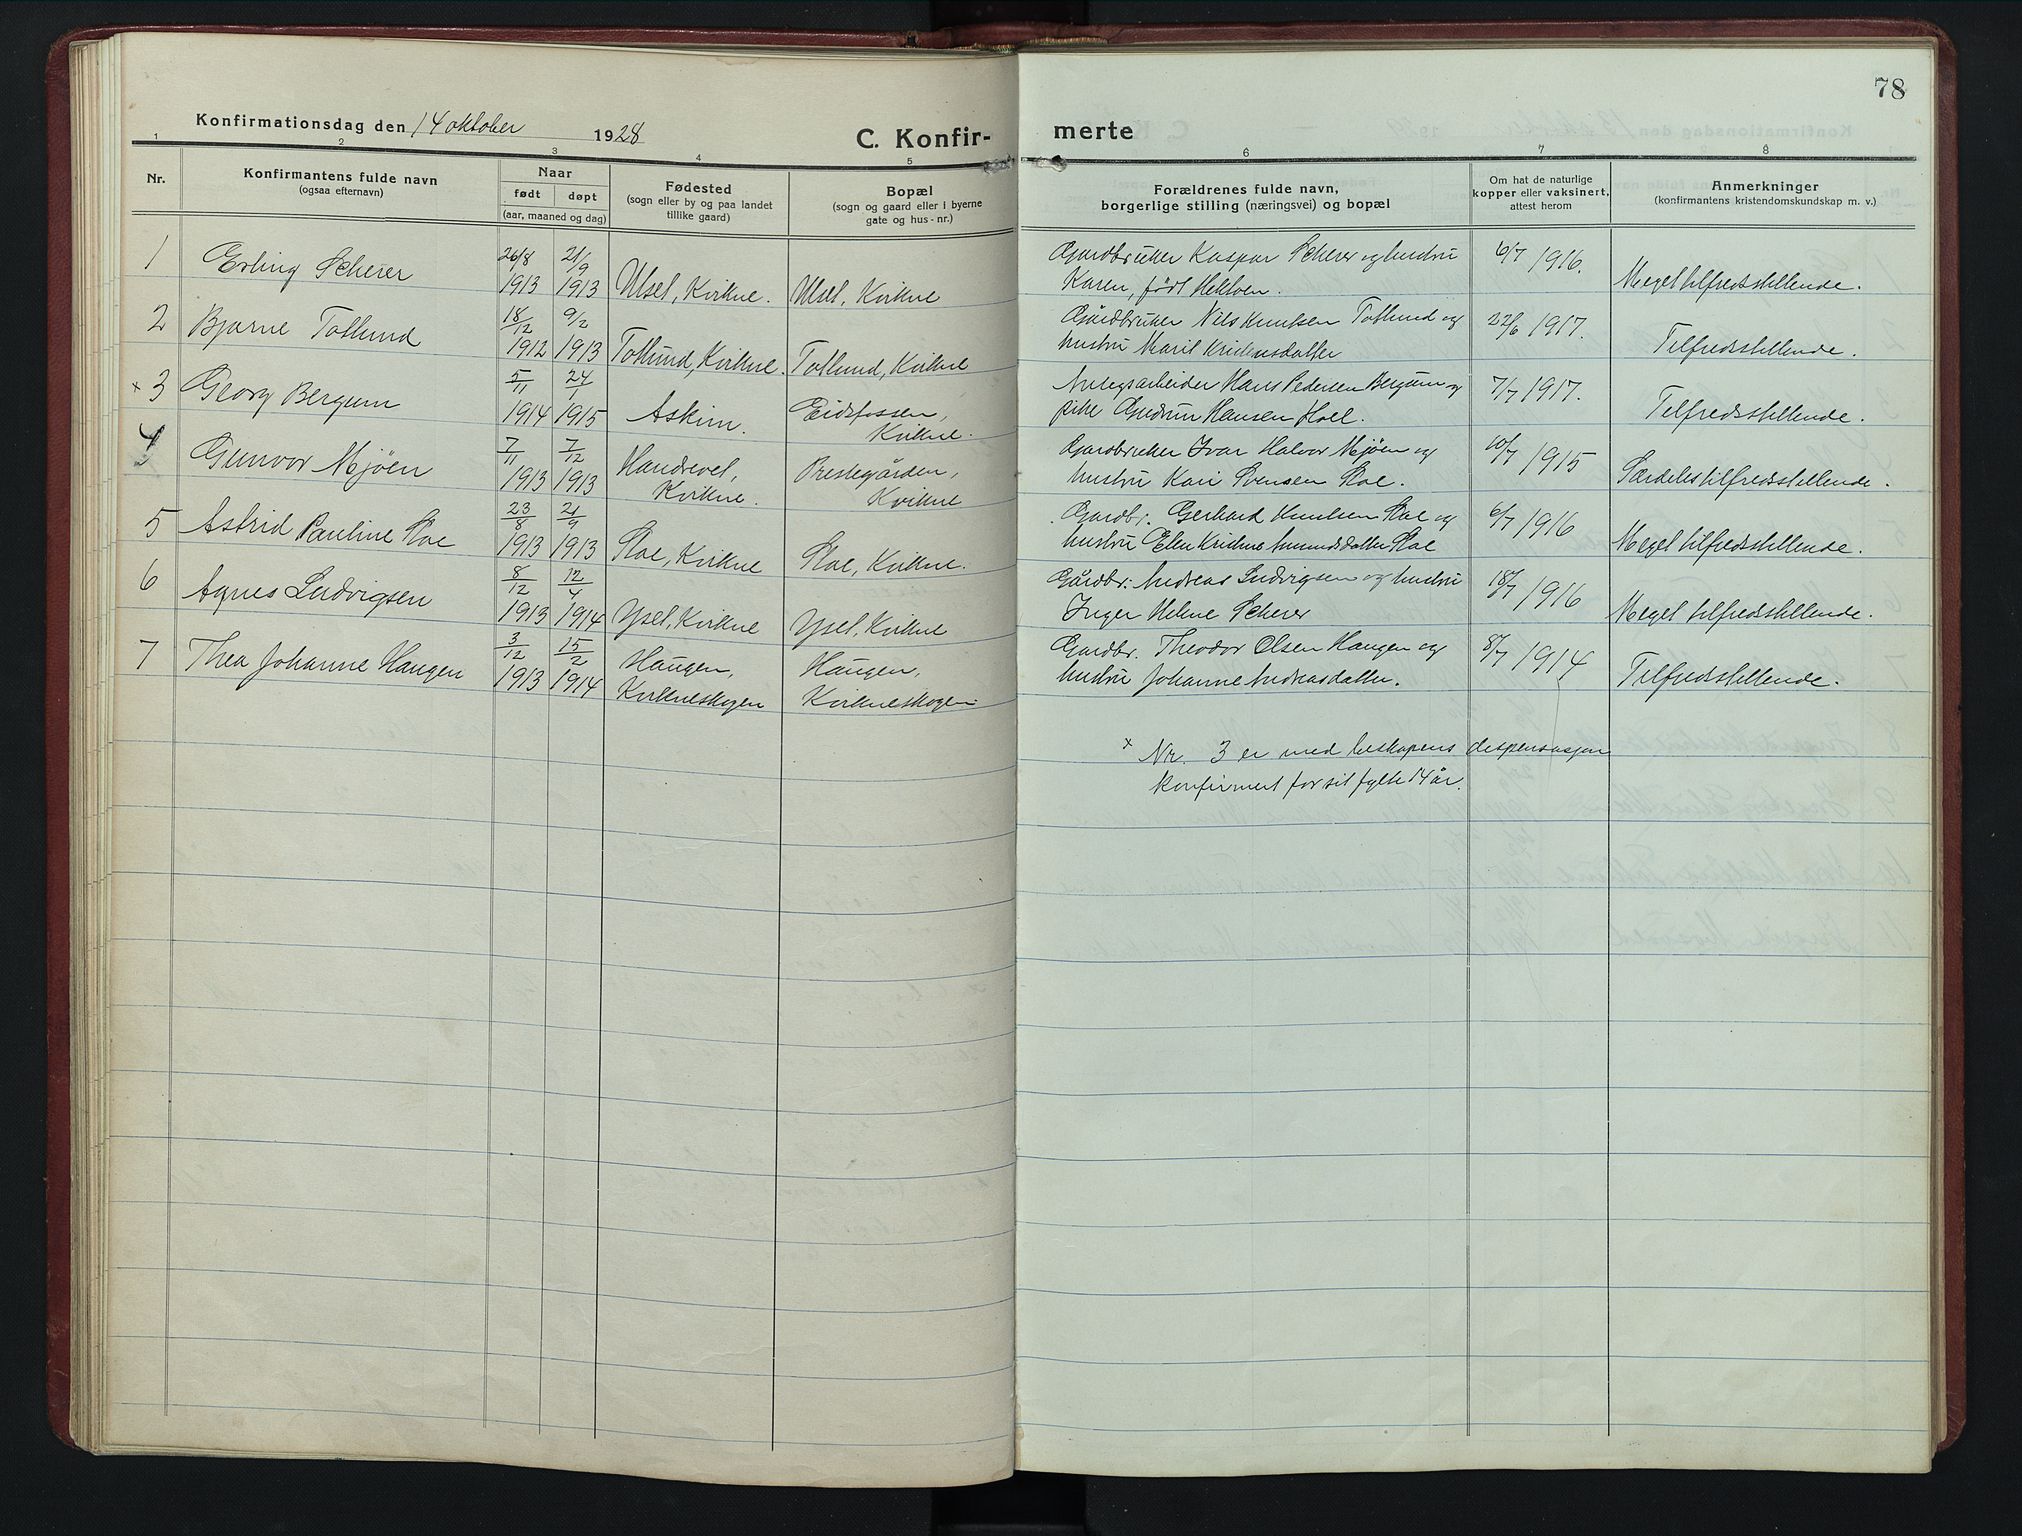 78
Konfirmationsdag den 14 oktober 1928
C. Konfir-
merte
1 2 3 4 5 6 7 8
Nr.
Konfirmantens fulde navn
(ogsaa efternavn)
Naar
født døpt
(aar, maaned og dag)
Fødested
(sogn eller by og paa landet
tillike gaard)
Bopæl
(sogn og gaard eller i byerne
gate og hus-nr.)
Forældrenes fulde navn,
borgerlige stilling (næringsvei) og bopæl
Om hat de naturlige
kopper eller vaksinert,
attest herom
Anmerkninger
(konfirmantens kristendomskundskap m. v.)
1 Erling Scherer 26/8 1913 21/9 1913 Ulset, Kvikne. Ulset, Kvikne
Gardbruker Kaspar Scherer og hustru
Karen, født Hektoen.
6/7 1916. Meget tilfredsstillende.
2 Bjarne Tollund 18/12 1912 9/2 1913 Tollund, Kvikne. Tollund, Kvikne
Gårdbruker Nils Knutsen Tollund og
hustru Marit Kristensdatter
22/6 1917. Tilfredsstillende.
x 3 Georg Bergum 5/11 1914 24/1 1915 Askim. Eidsfossen,
Kvikne.
Anlegsarbeider Hans Pedersen Bergum og
pike Gudrun Hansen Hoel.
7/7 1917. Tilfredsstillende.
4 Gunvor Mjøen 7/11 1913 7/12 1913 Handsvel,
Kvikne. Prestegården,
Kvikne
Gardbruker Ivar Halvor Mjøen og
hustru Kari Svensen Stoe.
10/7 1915 Særdeles tilfredsstillende.
5 Astrid Pauline Stoe 23/8 1913 21/9 1913 Stoe, Kvikne Stoe, Kvikne.
Gardbr. Gerhard Knutsen Stoe og
hustru Elen Kristine Amundsdatter Stoe
6/7 1916 Meget tilfredsstillende.
6 Agnes Ludvigsen 8/12 1913 12/4 1914 Yset, Kvikne Yset, Kvikne
Gårdbr: Andreas Ludvigsen og hustru
Inger Helene Scherer
18/7 1916 Meget tilfredsstillende.
7 Thea Johanne Haugen 3/12 1913 15/2 1914 Haugen,
Kvikneskogen Haugen,
Kvikneskogen
Gardbr. Theodor Olsen Haugen og
hustru Johanne Andreasdatter.
8/7 1914 Tilfredsstillende.
x Nr. 3 er med biskopens dispensasjon
konfirmert før sit fylte 14 år.